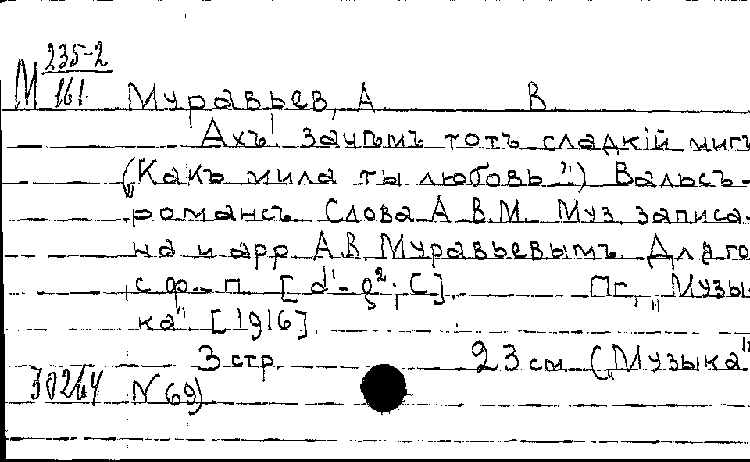 М 235-2
161
Муравьев, А. В.
Ахъ! зачѣмъ тотъ сладкiй мигъ
("Какъ мила ты любовь") Вальсъ-
романсъ. Слова А.В.М. Муз. записа-
на и арр. А.В. Муравьевымъ. Для го
с ф.-п. [d¹-g²; C]. Пг., "Музы-
ка" [1916].
3 стр. 23 см. ("Музыка"
30264 N 69)